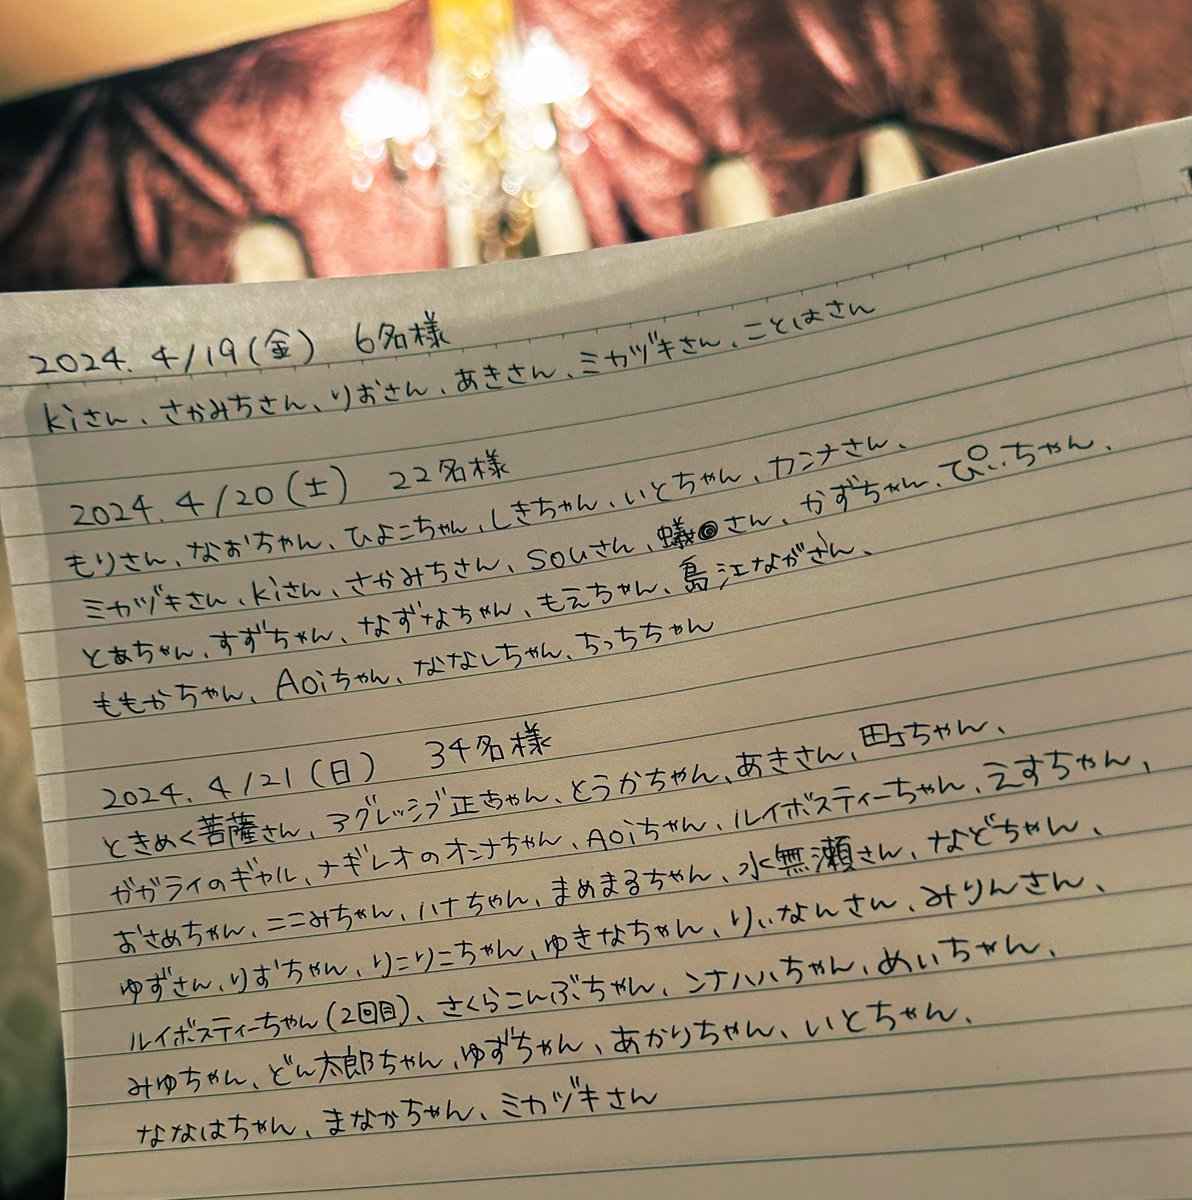 2024. 4/19(金) 6名様
kiさん、さかみちさん、りおさん、あきさん、ミカヅキさん、ことはさん
2024. 4/20(土) 22名様
もりさん、なおちゃん、ひよこちゃん、しきちゃん、いとちゃん、カンナさん、
ミカヅキさん、kiさん、さかみちさん、souさん、蟻さん、かずちゃん、ぴぃちゃん、
とあちゃん、すずちゃん、なずなちゃん、もえちゃん、島江ながさん、
ももかちゃん、Aoiちゃん、ななしちゃん、ちっちちゃん
2024. 4/21(日) 34名様
ときめく菩薩さん、アグレッシブ正ちゃん、とうかちゃん、あきさん、町ちゃん、
ガガライのギャル、ナギレオのオンナちゃん、Aoiちゃん、ルイボスティーちゃん、えすちゃん、
おさめちゃん、ニニみちゃん、ハナちゃん、まめまるちゃん、水無瀬さん、などちゃん、
ゆずさん、りおちゃん、りこりこちゃん、ゆきなちゃん、りぃなんさん、みりんさん、
ルイボスティーちゃん(2回目)、さくらこんぶちゃん、ンナハハちゃん、めいちゃん、
みゆちゃん、どん太郎ちゃん、ゆずちゃん、あかりちゃん、いとちゃん、
ななはちゃん、まなかちゃん、ミカヅキさん